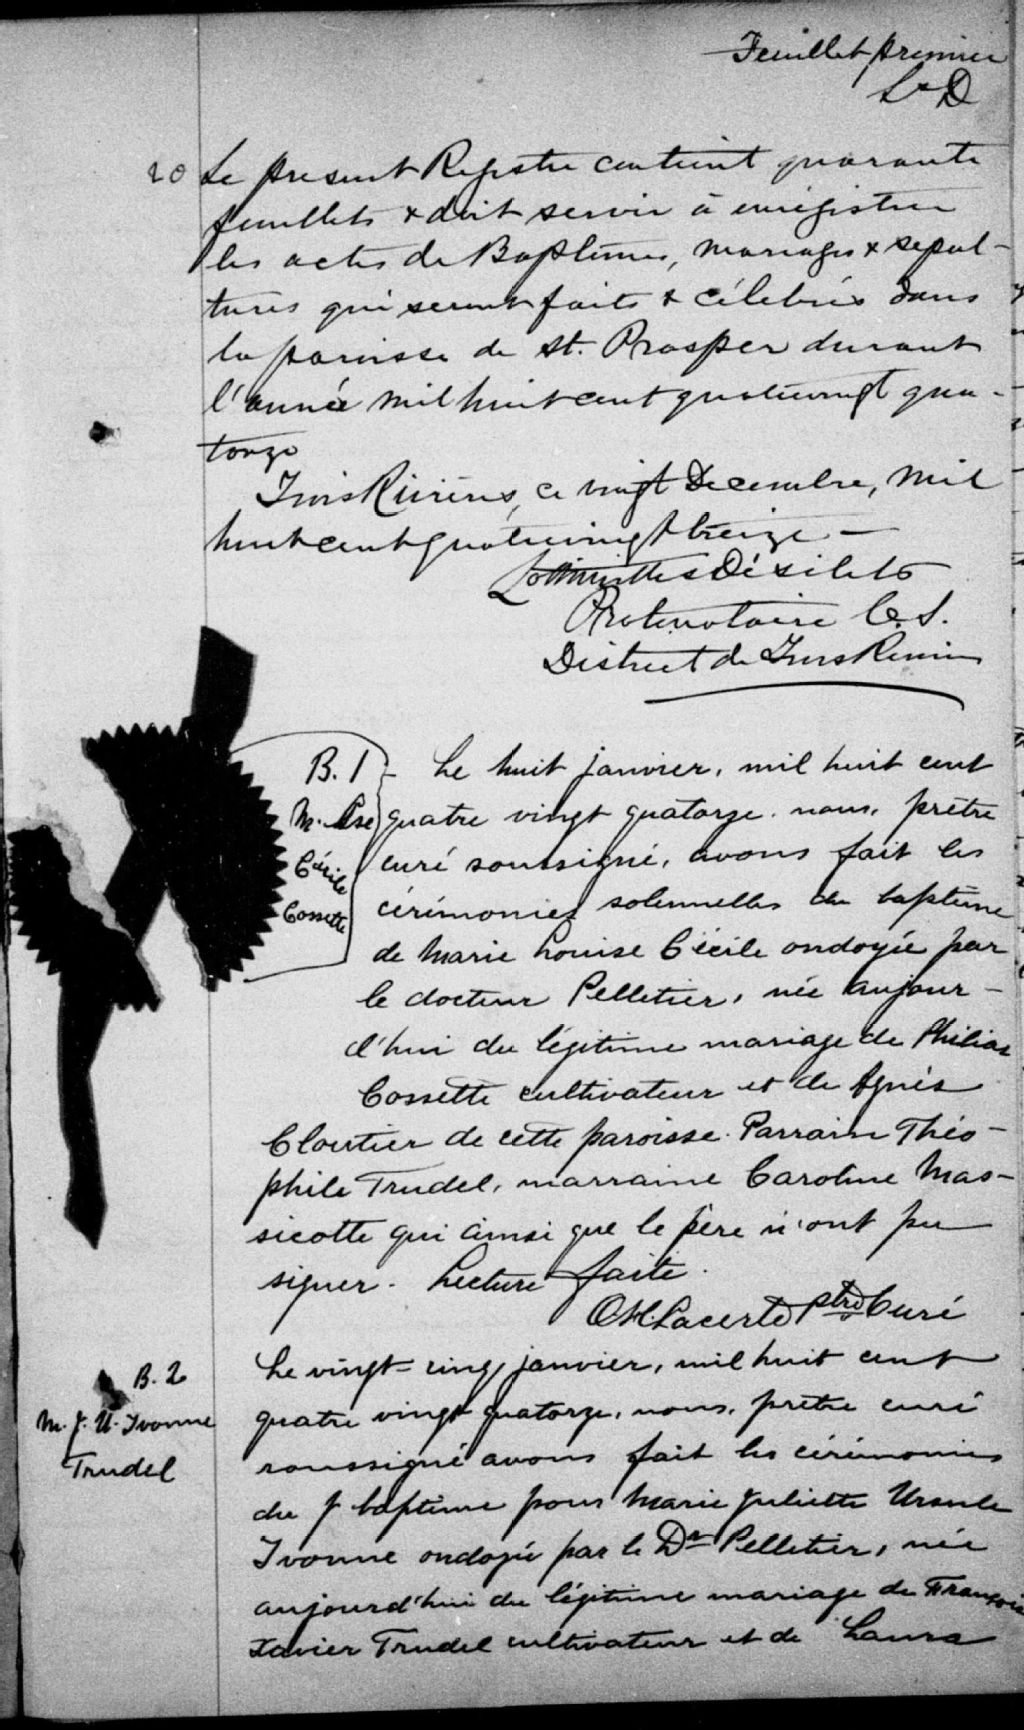 Feuillet premier
L D
20 Le présent Registre contient quarante
feuillets & doit servir à enrégistrer
les actes de Baptêmes, mariages & sepul-
tures qui seront faits & célébrés dans
la paroisse de St. Prosper durant
l'année mil huit cent quatrevingt qua-
torze
Trois Rivières, ce vingt Decembre, mil
huit cent quatrevingt treize —
Désilets
Protonotaire C. S.
District de Trois Rivières
B. 1
M. Lse
Cécile
Cossette
Le huit janvier, mil huit cent
quatre vingt quatorze, nous, prêtre
curé soussigné, avons fait les
cérémonies solennelles du baptême
de Marie Louise Cécile ondoyée par
le docteur Pelletier, née aujour-
d'hui du légitime mariage de Philias
Cossette cultivateur et de Agnès
Cloutier de cette paroisse. Parrain Théo-
phile Trudel, marraine Caroline Mas-
sicotte qui ainsi que le père n'ont pu
signer. Lecture faite.
O.H. Lacerte ptre Curé
B. 2
M. J. U. Ivonne
Trudel
Le vingt-cinq janvier, mil huit cent
quatre vingt quatorze, nous, prêtre curé
soussigné avons fait les cérémonies
du baptême pour Marie Juliette Ursule
Ivonne ondoyée par le Dr Pelletier, née
aujourd'hui du légitime mariage de François
Xavier Trudel cultivateur et de Laura